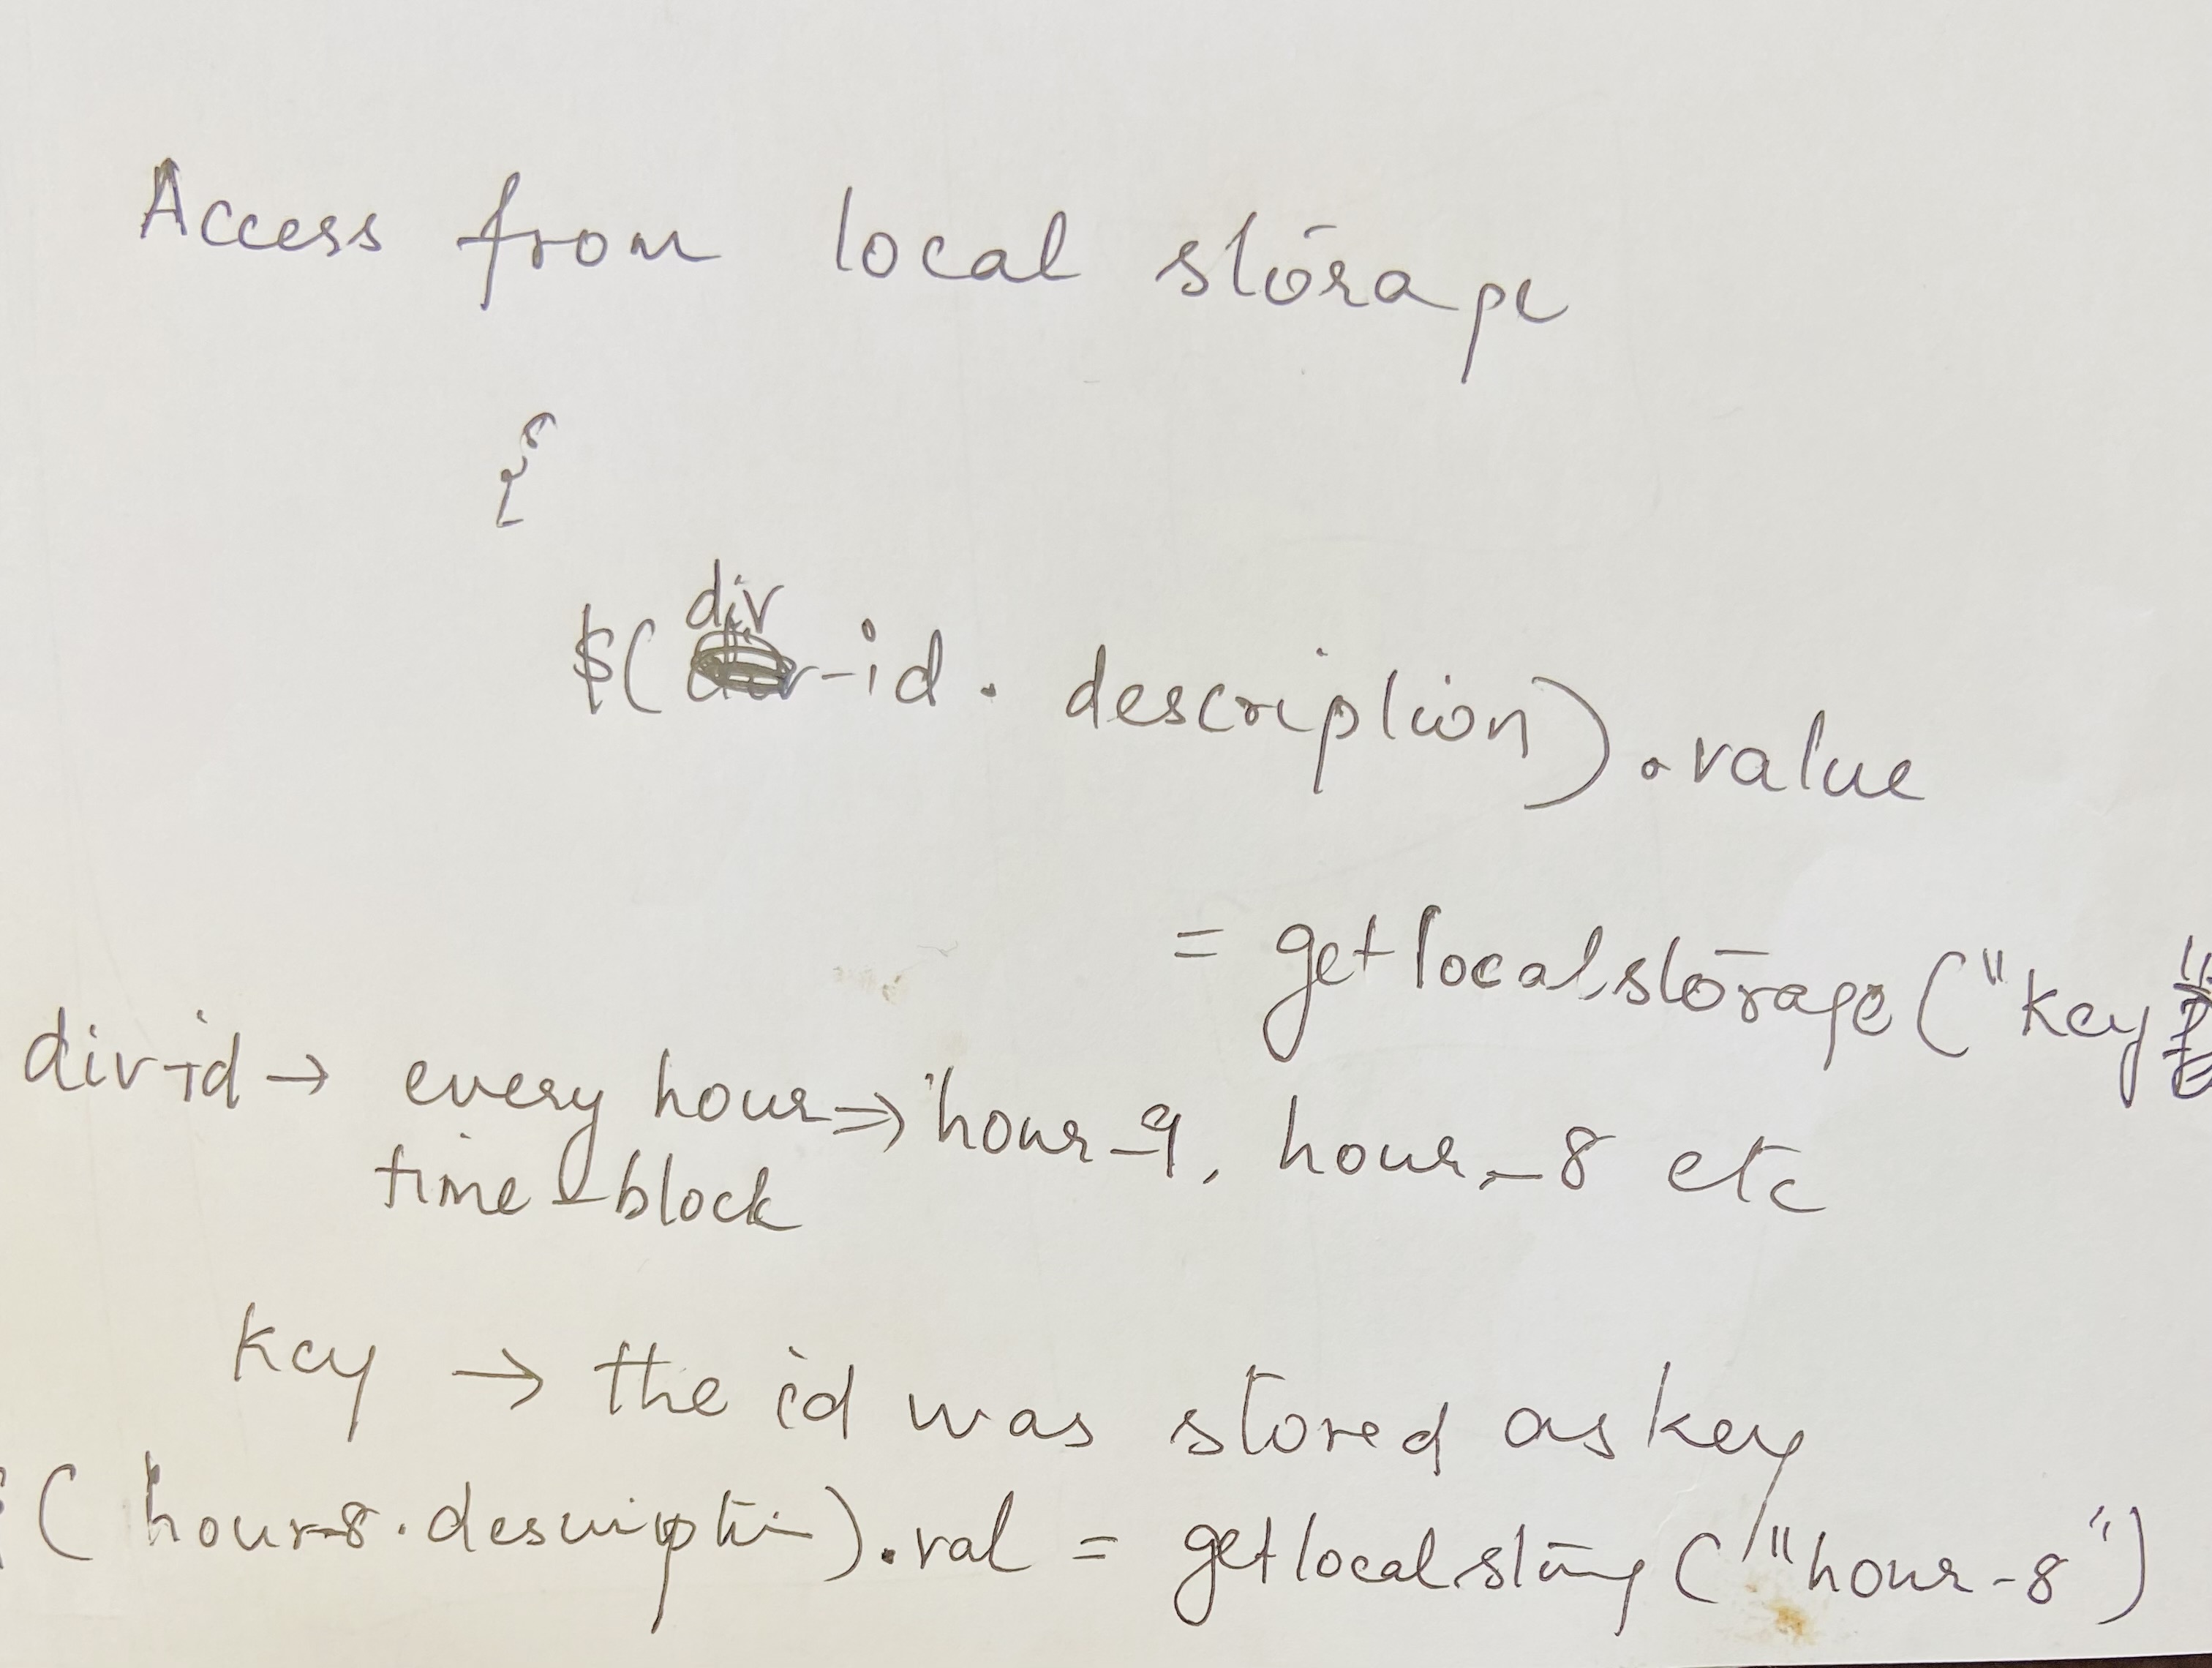 Access from local storage
{
$( div-id . description).value
= getlocalstorage("key
div-id → every hour => hour-9, hour-8 etc
time-block
key → the id was stored as key
( hour-8.description).val = getlocalstorage("hour-8")